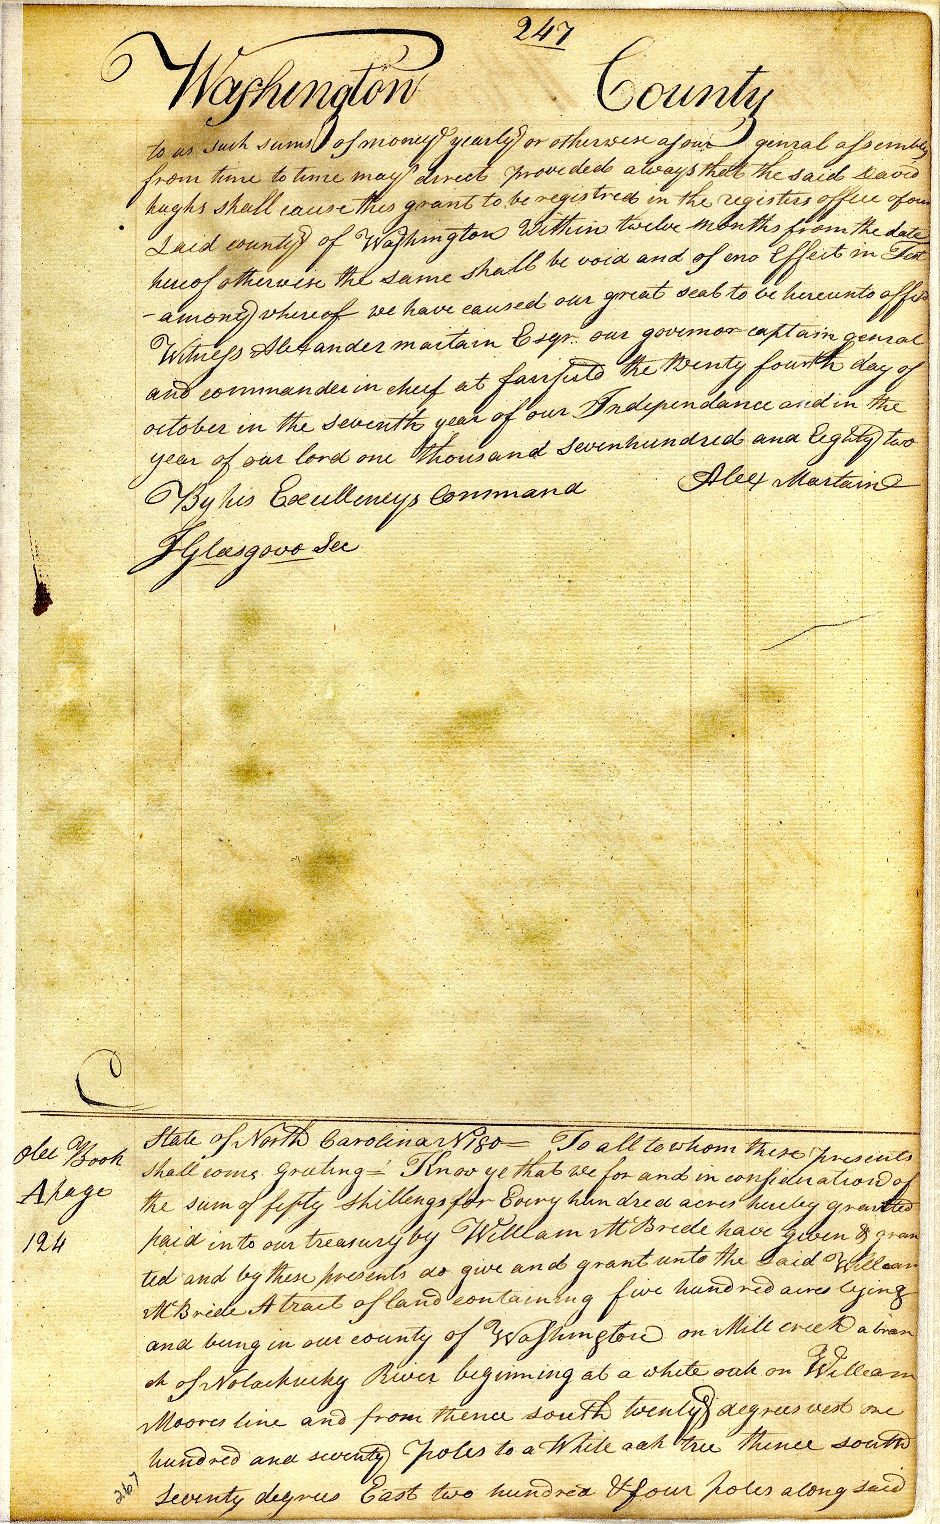 247
Washington County
to us such sums of money yearly or otherwise as our genral assembly
from time to time may direct provided always that the said David
hughs shall cause this grant to be registred in the registers office of our
Said county of Washington Within twelve months from the date
hereof otherwise the same shall be void and of no Effect in Test
-amony whereof we have caused our great seal to be hereunto affixd
Witness Alexander martain Esqr. our governor captain genral
and commander in cheef at fairfield the twenty fourth day of
october in the seventh year of our Independance and in the
year of our lord one thousand seven hundred and Eighty two
By his Excellencys Command Alex Martain
J Glasgow Sec
State of North Carolina No 180 = To all to whom these presents
shall come Greeting = Know ye that we for and in consideration of
the sum of fifty shillings for Every hundred acres hereby granted
paid into our treasury by William McBride have given & gran
ted and by these presents do give and grant unto the said William
McBride A tract of land containing five hundred acres lying
and being in our county of Washington on Mill creek a bran
ch of Nolachucky River beginning at a white oak on William
Moores line and from thence south twenty degrees west one
hundred and seventy poles to a White oak tree thence south
seventy degrees East two hundred & four poles along said
Old Book
A page
124
267